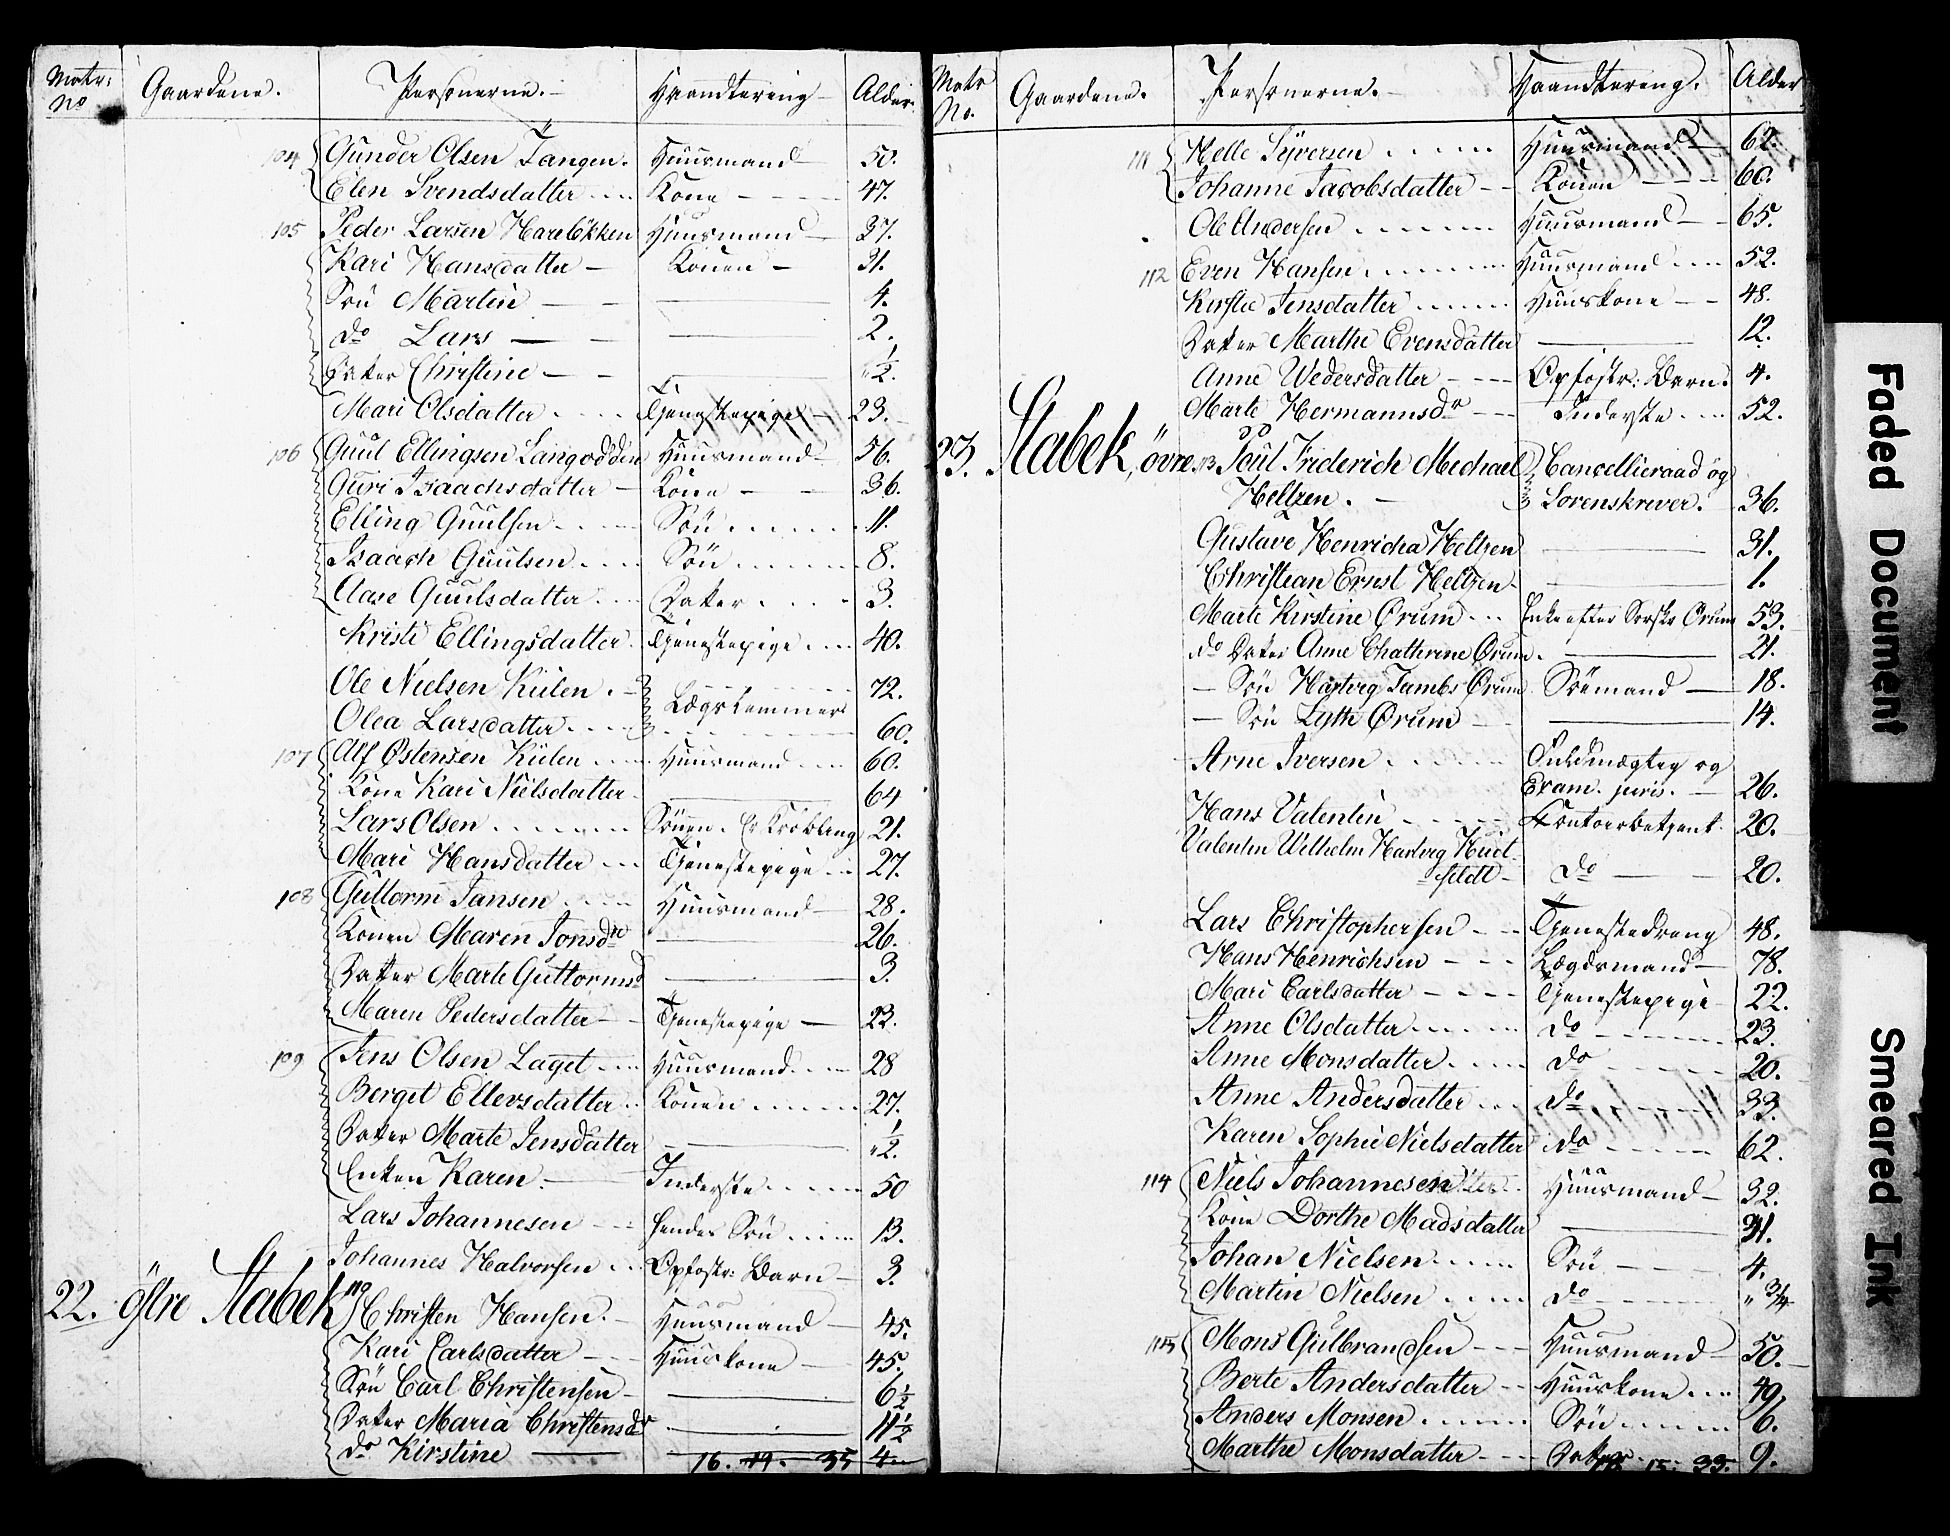 Matr: No Gaardene. Personerne. Haandtering Alder.
104 Gunder Olsen Tangen. Huusmand 50.
Elen Svendsdatter Kone 47.
105 Peder Larsen Harelökken Huusmand 37.
Kari Hansdatter Konen 31.
Sön Martin 4.
do Lars 2.
Datter Christine 1/2.
Mari Olsdatter Tjenestepige 23.
106 Guul Ellingsen Langodden Huusmand 56.
Guri Isaachsdatter Kone 36.
Elling Guulsen Sön 11.
Isaach Guulsen Sön 8.
Aase Guulsdatter Datter 3.
Kristi Ellingsdatter Tjenestepige 40.
Ole Nielsen Külen 72.
Lægslemmer
Olea Larsdatter 60.
107 Alf Østensen Külen Huusmand 60.
Kone Kari Nielsdatter 64
Lars Olsen Sönen. Er Kröbling 21.
Mari Hansdatter Tjenestepige 27.
108 Guttorm Jansen Huusmand 28.
Konen Maren Jonsdr 26.
Datter Marte Guttormsd 3.
Maren Pedersdatter Tjenestepige 22.
109 Jens Olsen Laget Huusmand 28
Berget Ellersdatter Konen 27.
Datter Marte Jensdatter 1/2.
Enken Karen Inderste 50
Lars Johannesen hendes Sön 13.
Johannes Halvorsen Opfostr: Barn 3.
22. östre Stabek 110 Christen Hansen. Huusmand 45.
Kari Carlsdatter Huuskone 45.
Sön Carl Christensen 6 1/2
Datter Maria Christensdr 11 1/2
do Kirstine 4
16. 19. 35
Matr No. Gaardene. Personerne. Haandtering. Alder
111 Helle Syversen Huusmand 62.
Johanne Jacobsdatter Konen 60.
Ole Andersen Huusmand 65.
112 Even Hansen Huusmand 52.
Kirstie Jensdatter Huuskone 48.
Datter Marthe Evensdatter 12.
Anne Wedersdatter Opfostr: Barn. 4.
Marte Hermannsdr Inderste 52.
23. Stabek, övre 113 Poul Friderich Mechael Cancellieraad og
Heltzen. Sorenskriver. 36.
Gustave Henricha Heltzen 31.
Christian Ernst Heltzen 1.
Marte Kirstine Ørum Enke efter Sorskr Ørum 53.
do Datter Anne Chathrine Ørum. 21.
Sön Hartvig Tambs Ørum Sömand 18.
Sön Lyth Ørum 14.
Arne Iversen Fuldmægtig og
Exam. juris. 26.
Hans Valentin Contoirbetjent 20.
Valentin Wilhelm Hartvig Huit-
feldt do 20.
Lars Christophersen Tjenestedreng 48.
Hans Henrichsen Lægdsmand 78.
Mari Carlsdatter Tjenestepige 22.
Anne Olsdatter do 23.
Anne Monsdatter do 20.
Anne Andersdatter do 33.
Karen Sophie Nielsdatter do 62.
114 Niels Johannesen Huusmand 32.
Kone Dorthe Madsdatter 31.
Johan Nielsen Sön 4.
Martin Nielsen do 3/4
115 Mons Gulbrandsen Huusmand 50.
Berte Andersdatter Huuskone 40.
Anders Monsen Sön 6.
Marthe Monsdatter Datter 9.
15. 33.
Faded Document
Smeared Ink